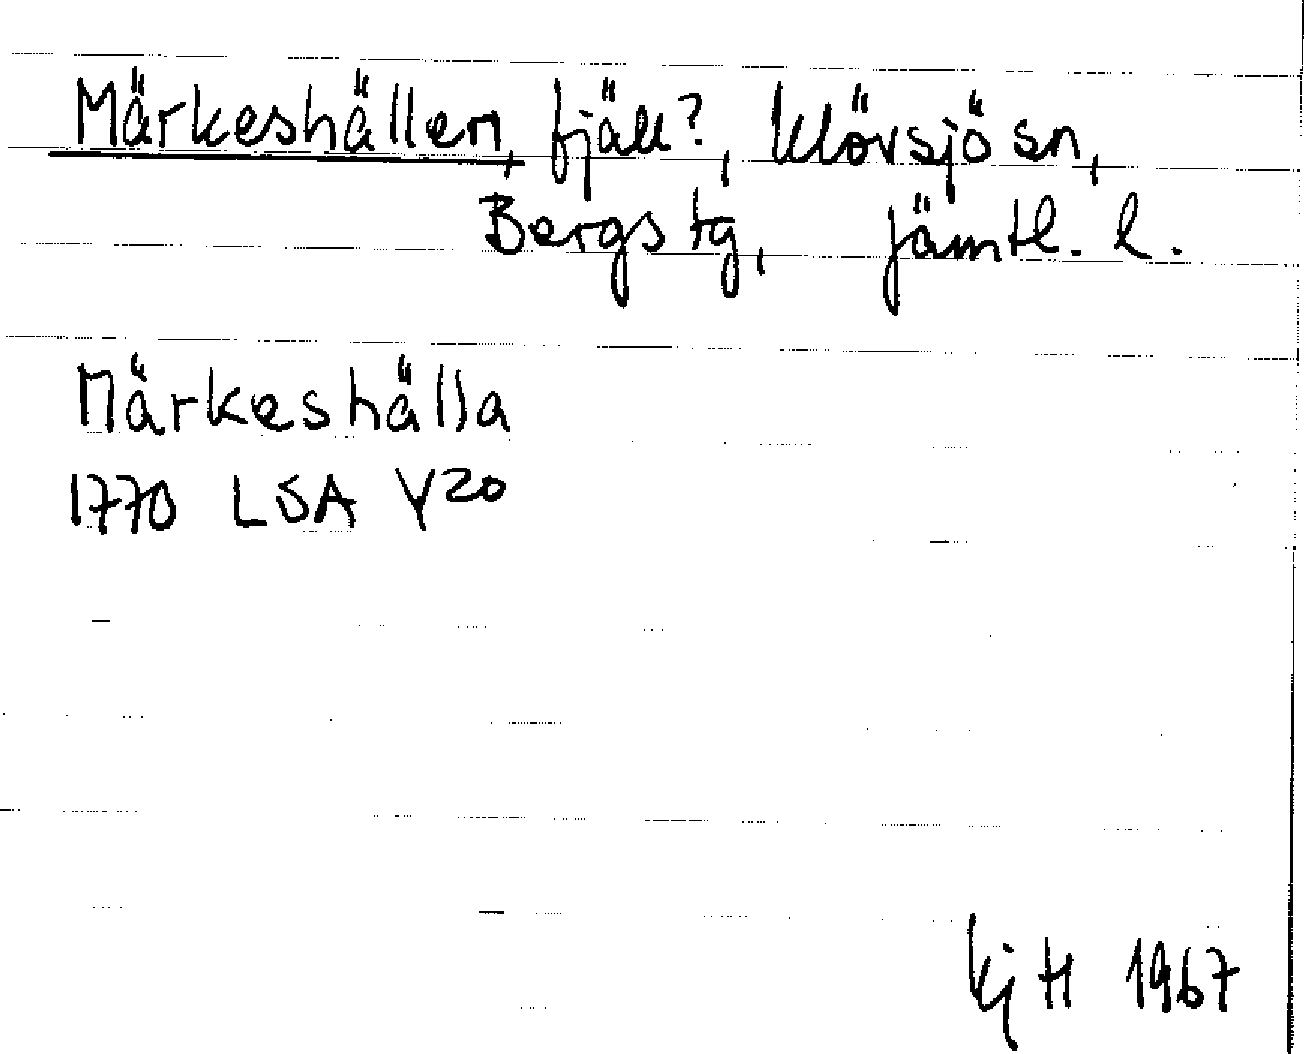 Märkeshällen, fjäll?, Klövsjö sn,
Bergs tg, Jämtl. l.
Märkeshälla
1770 LSA Y20
Kj H 1967